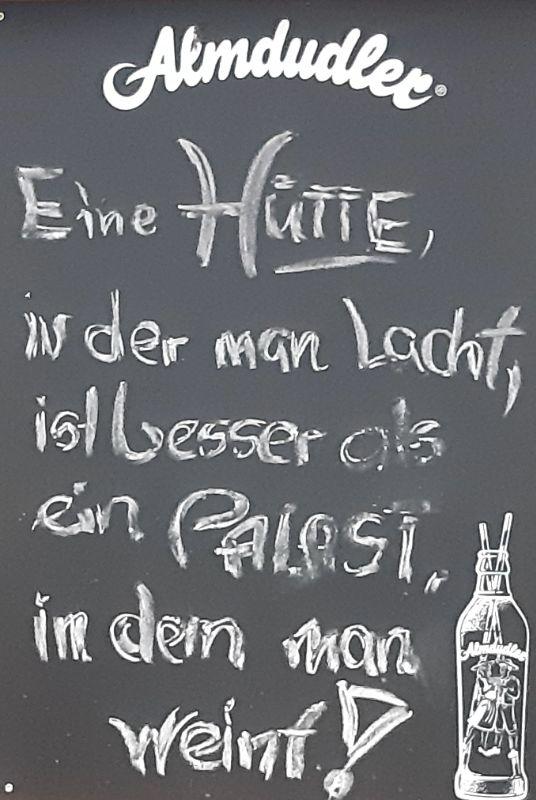 Almdudler®
Eine HÜTTE,
in der man Lacht,
ist besser als
ein PALAST,
in dem man
weint!
Almdudler